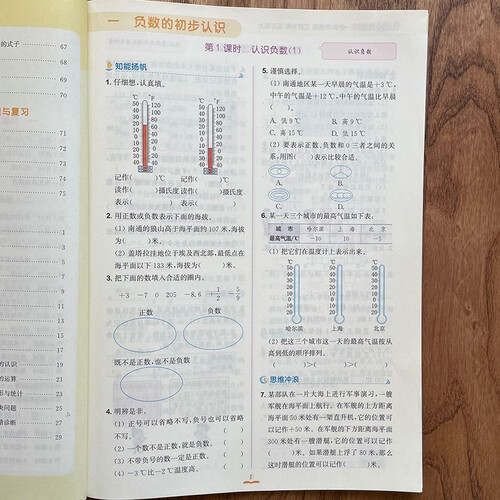 的式子 67
68
70
与复习
71
72
74
75
1
19
的认识 19
的运算 21
形与统计 22
决问题 24
错诊断 29
一 负数的初步认识
第1课时 认识负数(1)
认识负数
知能扬帆
1. 仔细想,认真填。
℃ ℉
℃ ℉
记作( )℃ 记作( )℃
读作( )摄氏度 读作( )摄氏度
表示( ) 表示( )
2. 用正数或负数表示下面的海拔。
(1) 南通的狼山高于海平面约107米,海拔
为( )米。
(2) 盖塔拉洼地位于埃及西北部,最低点在
海平面以下133米,海拔为( )米。
3. 把下面的数填入合适的圈内。
+3 −7 0 205 −8.6 +1/2 −5/9
正数 负数
既不是正数,也不是负数
4. 明辨是非。
(1) 正号可以省略不写,负号也可以省略
不写。 ( )
(2) 一个数不是正数,就是负数。 ( )
(3) 不带负号的数一定是正数。 ( )
(4) −3℃比−2℃温度高。 ( )
5. 谨慎选择。
(1) 南通地区某一天早晨的气温是+3℃,
中午的气温是+12℃,中午的气温比早晨
( )。
A. 低9℃ B. 高9℃
C. 高15℃ D. 低15℃
(2) 要表示正数、负数和0三者之间的关
系,用图( )表示比较合适。
A. B.
C. D.
6. 某一天三个城市的最高气温如下表:
城 市 哈尔滨 上 海 北 京
最高气温/℃ −10 10 −5
(1) 把它们在温度计上表示出来。
℃ ℃ ℃
哈尔滨 上海 北京
(2) 把这三个城市这一天的最高气温按从
高到低的顺序排列。
( )>( )>( )
思维冲浪
7. 某部队在一片大海上进行军事演习,一艘
军舰在海平面上航行。在军舰的上方距离
海平面50米处有一架直升机,它的位置可
以记作+50米。在军舰的下方距离海平面
300米处有一艘潜艇,它的位置可以记作
( )米。如果潜艇上浮了80米,那么
这时潜艇的位置可以记作( )米。
1